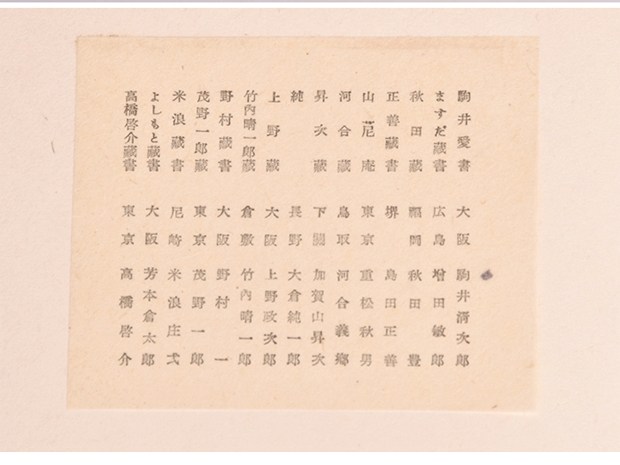 駒井愛書 大阪 駒井清次郎
ますだ蔵書 広島 増田敏郎
秋田蔵 福岡 秋田豊
正善蔵書 堺 島田正善
山茫庵 東京 重松秋男
河合蔵 鳥取 河合義郷
昇次蔵 下關 加賀山昇次
純 長野 大倉純一郎
上野蔵 大阪 上野政次郎
竹內晴一郎蔵 倉敷 竹內晴一郎
野村蔵書 大阪 野村一
茂野一郎蔵 東京 茂野一郎
米浪蔵書 尼崎 米浪庄弌
よしもと蔵書 大阪 芳本倉太郎
高橋啓介蔵書 東京 高橋啓介